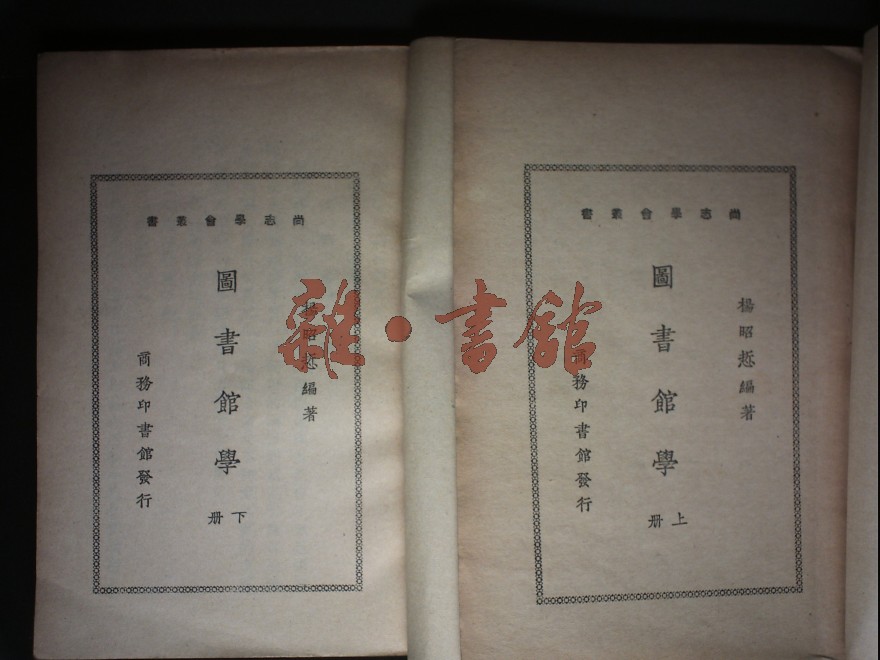 尚志學會叢書
楊昭悊編著
圖書館學
上册
商務印書館發行
尚志學會叢書
楊昭悊編著
圖書館學
下册
商務印書館發行
雜·書館